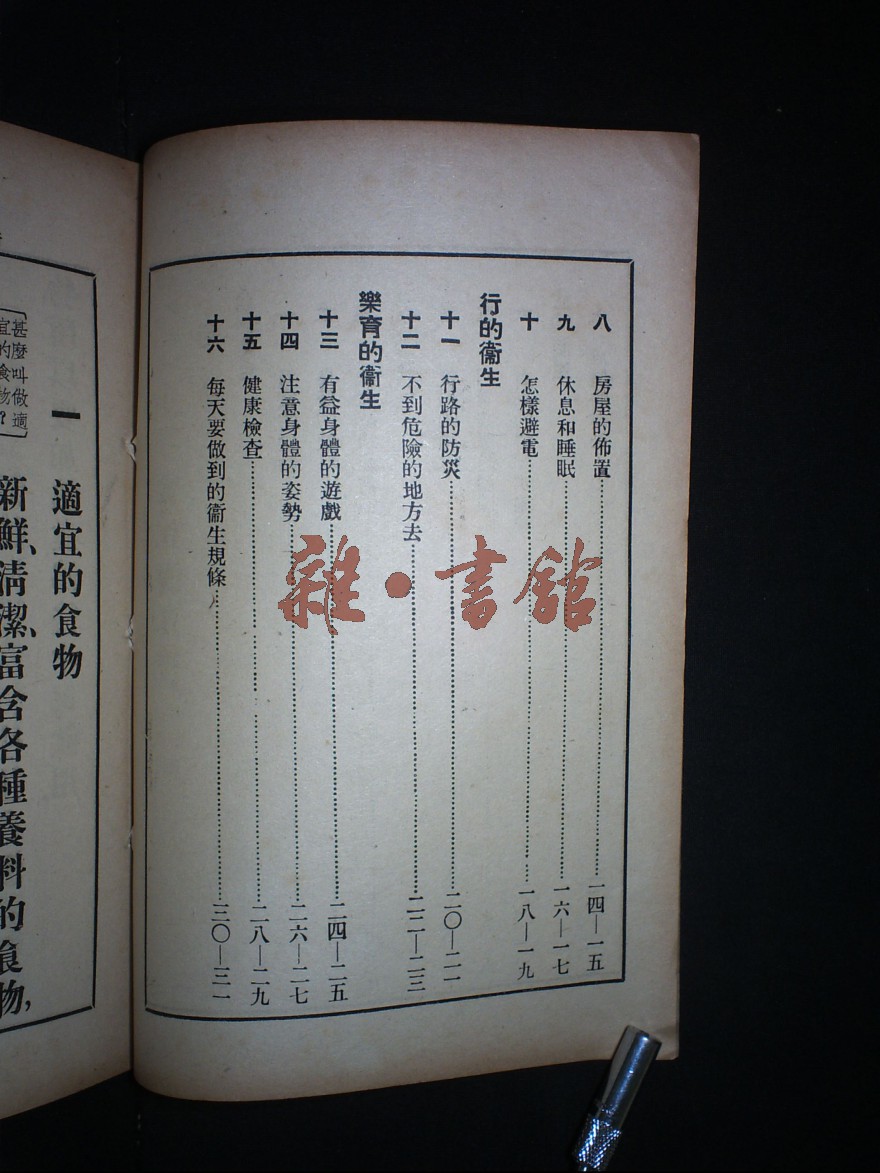 八 房屋的佈置 一四—一五
九 休息和睡眠 一六—一七
十 怎樣避電 一八—一九
行的衞生
十一 行路的防災 二〇—二一
十二 不到危險的地方去 二二—二三
樂育的衞生
十三 有益身體的遊戲 二四—二五
十四 注意身體的姿勢 二六—二七
十五 健康檢查 二八—二九
十六 每天要做到的衞生規條 三〇—三一
雜·書館
一 適宜的食物
甚麼叫做適
宜的食物?
新鮮、清潔、富含各種養料的食物,